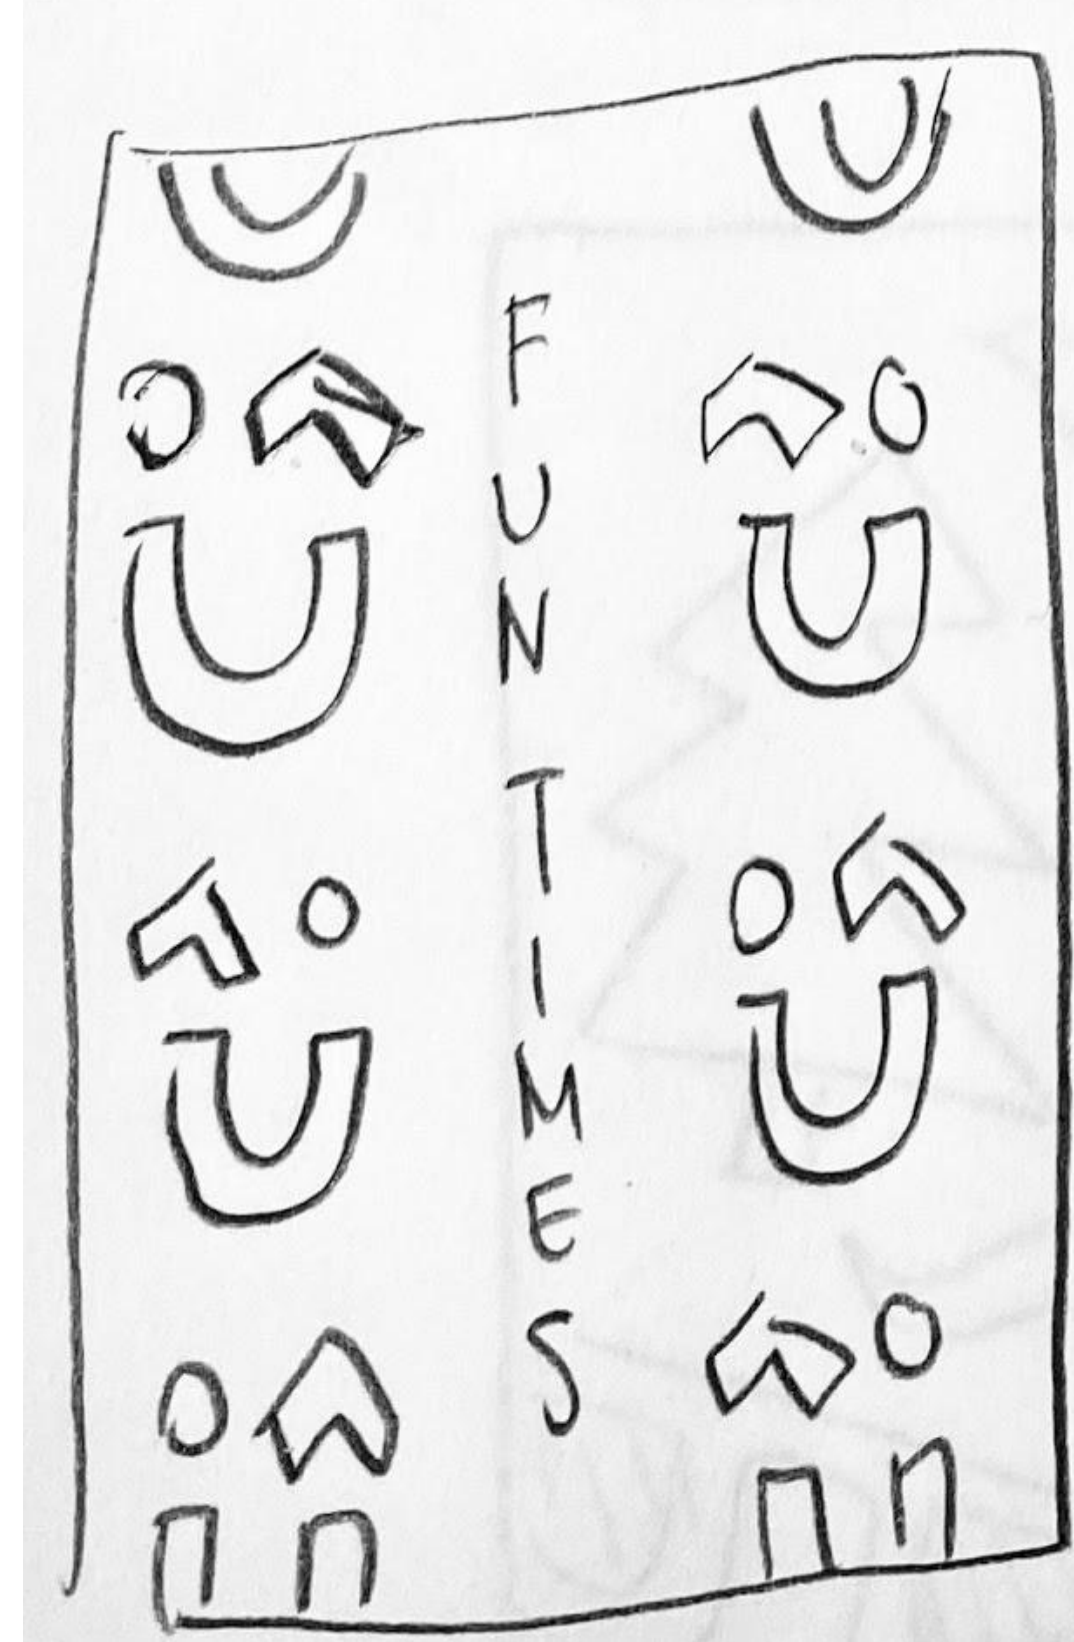 FUN
TIMES